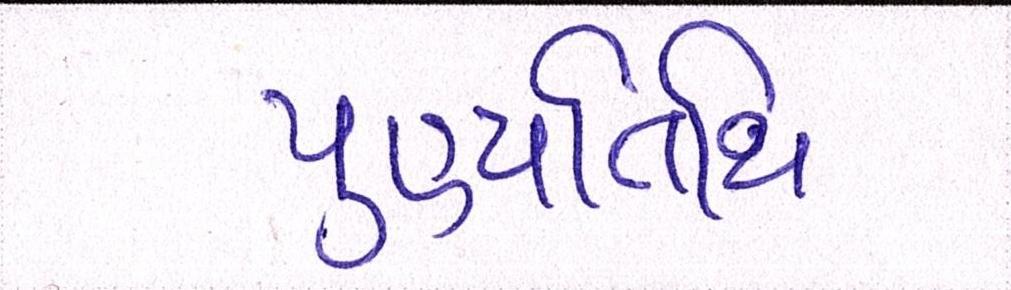 પુણ્યતિથિ